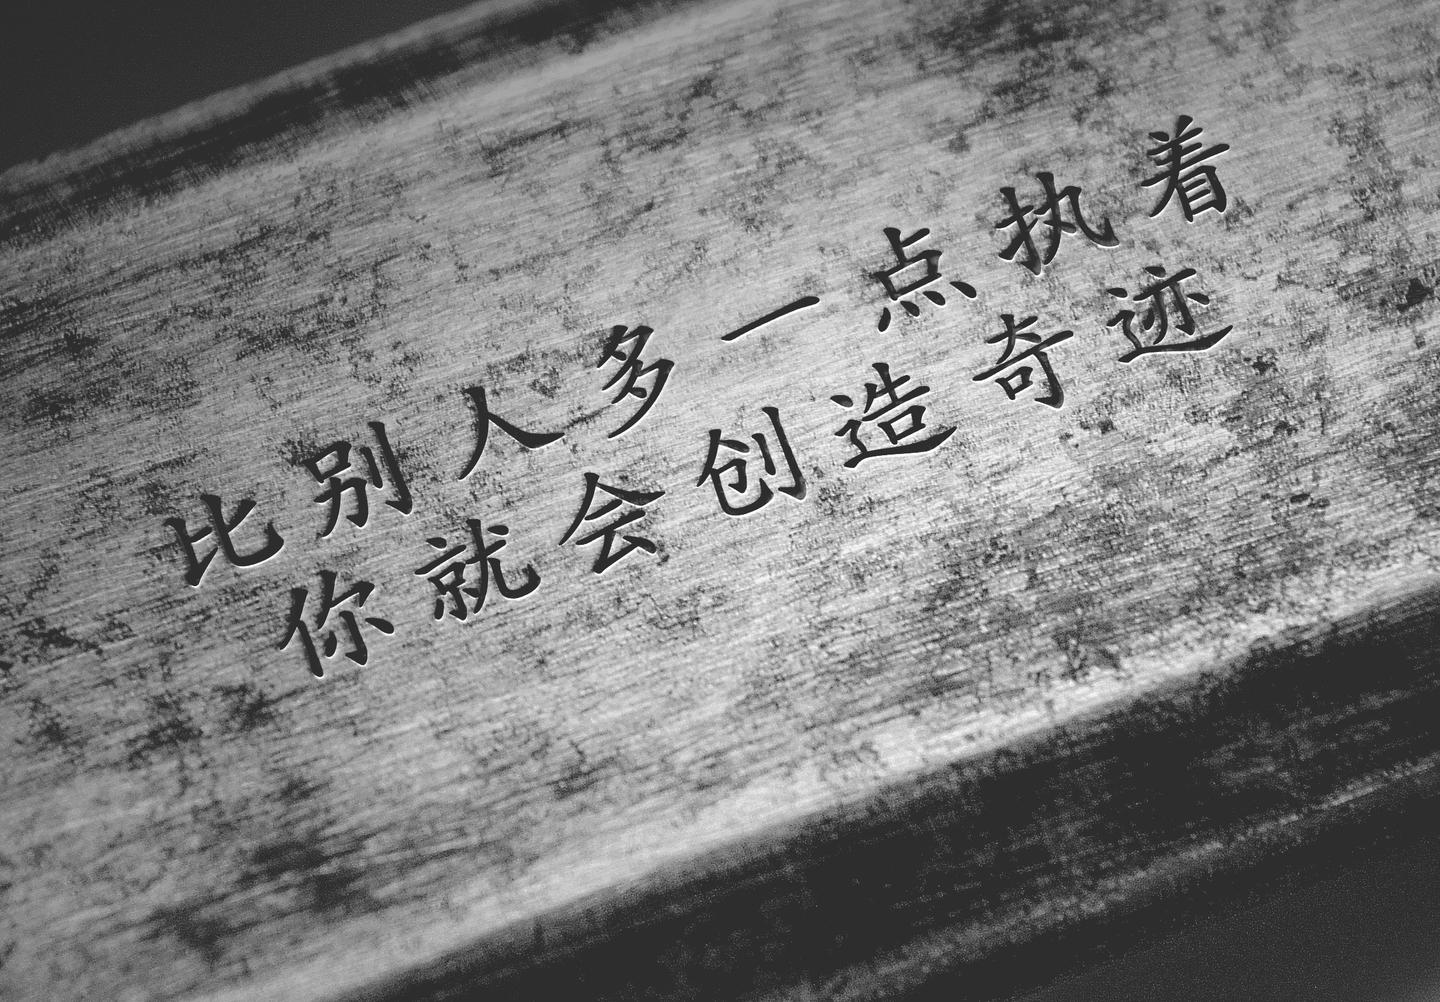 比别人多一点执着
你就会创造奇迹